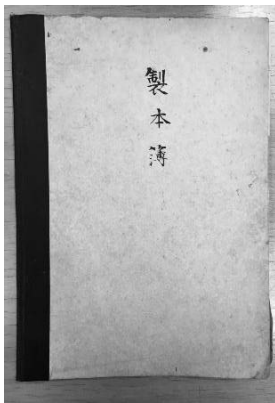 製本簿